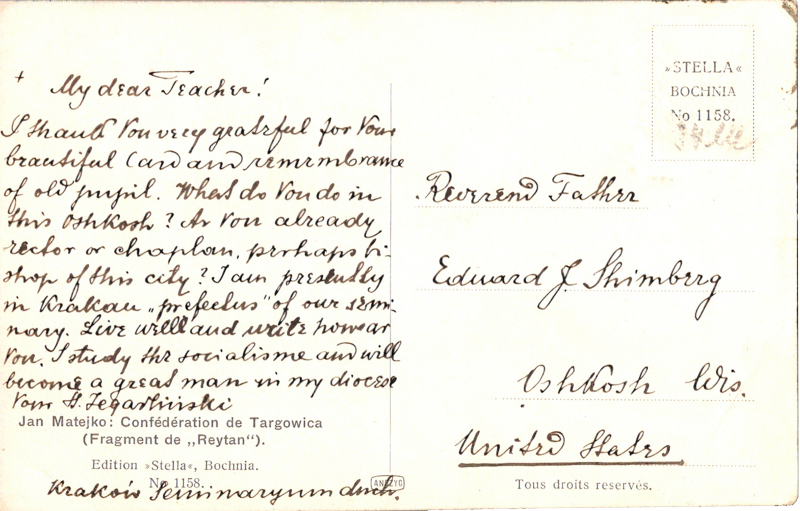 + My dear Teacher!
I thank You very grateful for Your
beautiful Card and remembrance
of old pupil. What do You do in
this Oshkosh? Ar You already
rector or chaplan, perhaps bi-
shop of this city? I am presently
in Krakau „prefectus" of our semi-
nary. Live well and write how ar
You. I study the socialisme and will
become a great man in my diocese
Your
Jan Matejko: Confédération de Targowica
(Fragment de „Reytan").
Edition »Stella«, Bochnia.
No 1158.
Kraków Seminaryum duch.
»STELLA«
BOCHNIA
No 1158.
Reverend Father
Eduard J. Shimberg
Oshkosh Wis.
United States
ANCZYC
Tous droits reservés.